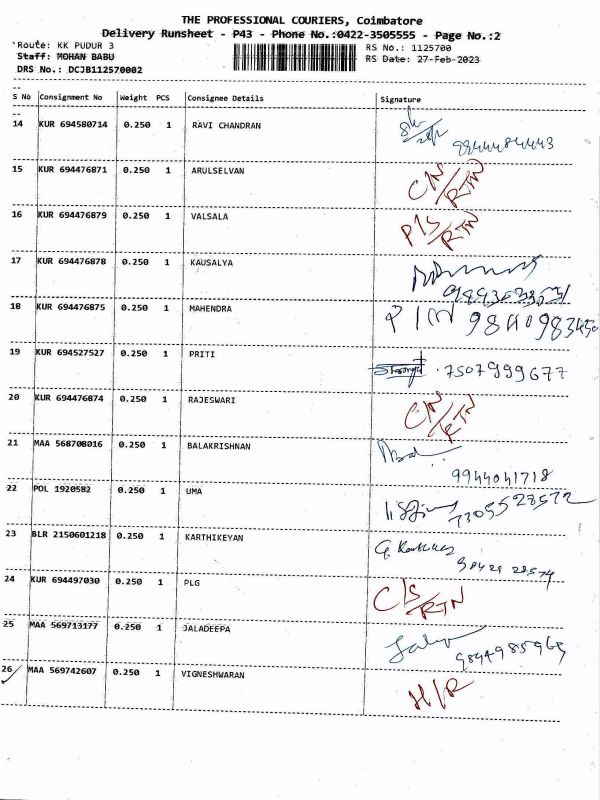 THE PROFESSIONAL COURIERS, Coimbatore
Delivery Runsheet - P43 - Phone No.:0422-3505555 - Page No.:2
Route: KK PUDUR 3 RS No.: 1125700
Staff: MOHAN BABU RS Date: 27-Feb-2023
DRS No.: DCJB112570002
S No Consignment No Weight PCS Consignee Details Signature
14 KUR 694580714 0.250 1 RAVI CHANDRAN 9844484443
15 KUR 694476871 0.250 1 ARULSELVAN C/N/RTN
16 KUR 694476879 0.250 1 VALSALA P/S/RTN
17 KUR 694476878 0.250 1 KAUSALYA
18 KUR 694476875 0.250 1 MAHENDRA
19 KUR 694527527 0.250 1 PRITI 7507999677
20 KUR 694476874 0.250 1 RAJESWARI C/N/RTN
21 MAA 568708016 0.250 1 BALAKRISHNAN 9944041718
22 POL 1920582 0.250 1 UMA 7305528572
23 BLR 2150601218 0.250 1 KARTHIKEYAN
24 KUR 694497030 0.250 1 PLG C/S/RTN
25 MAA 569713177 0.250 1 JALADEEPA
26 MAA 569742607 0.250 1 VIGNESHWARAN H/R